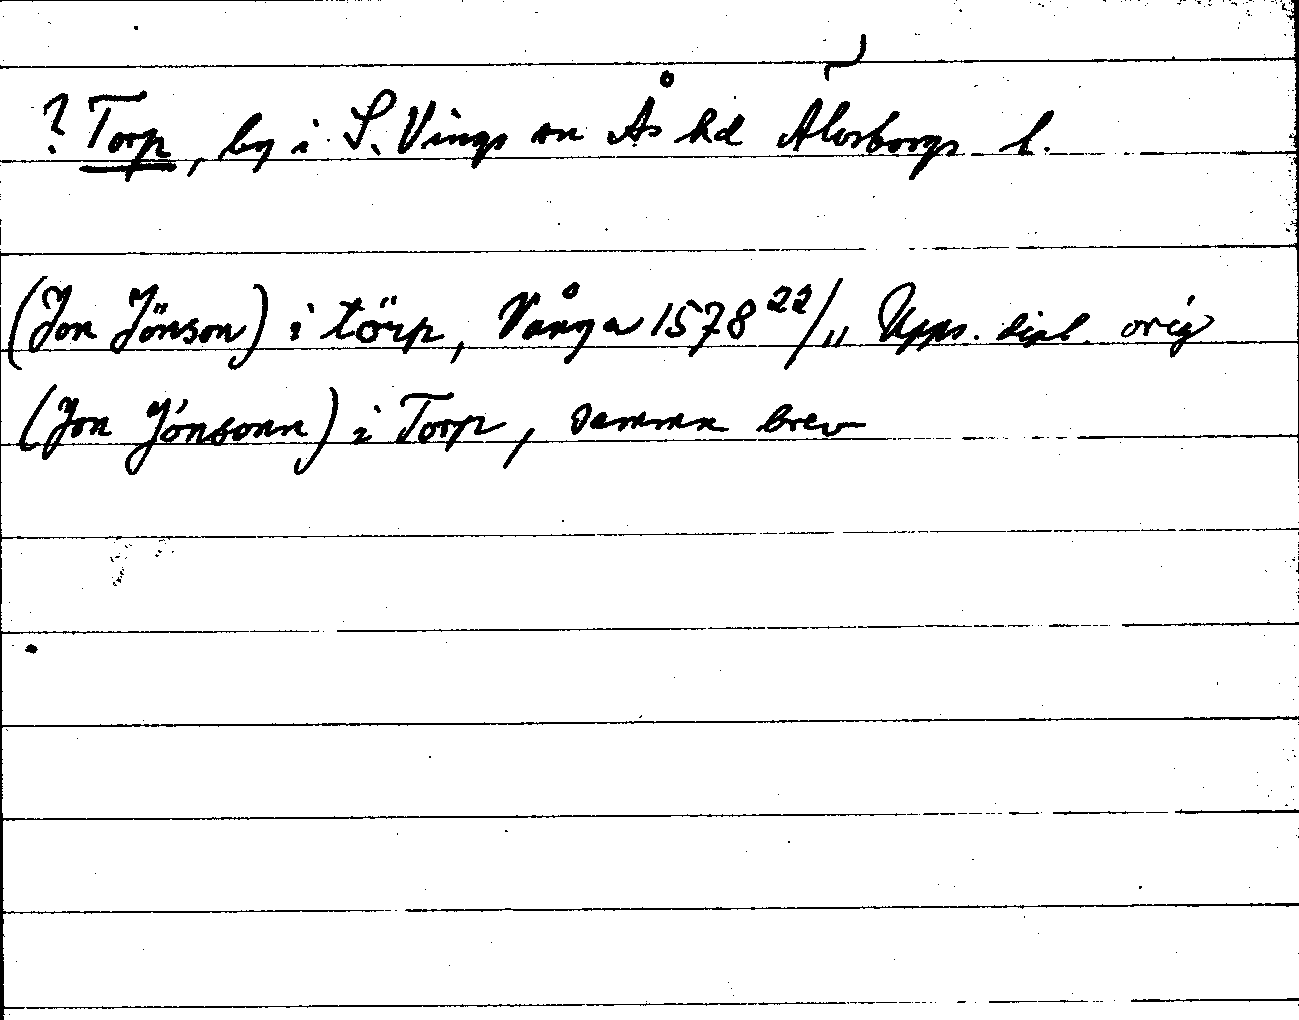 ? Torp, by i S. Vings sn Ås hd Älvsborgs l.
(Jon Jönson) i törp, Vånga 1578 22/11 Upps. dipl. orig
(Jon Jónsonn) i Torp, samma brev